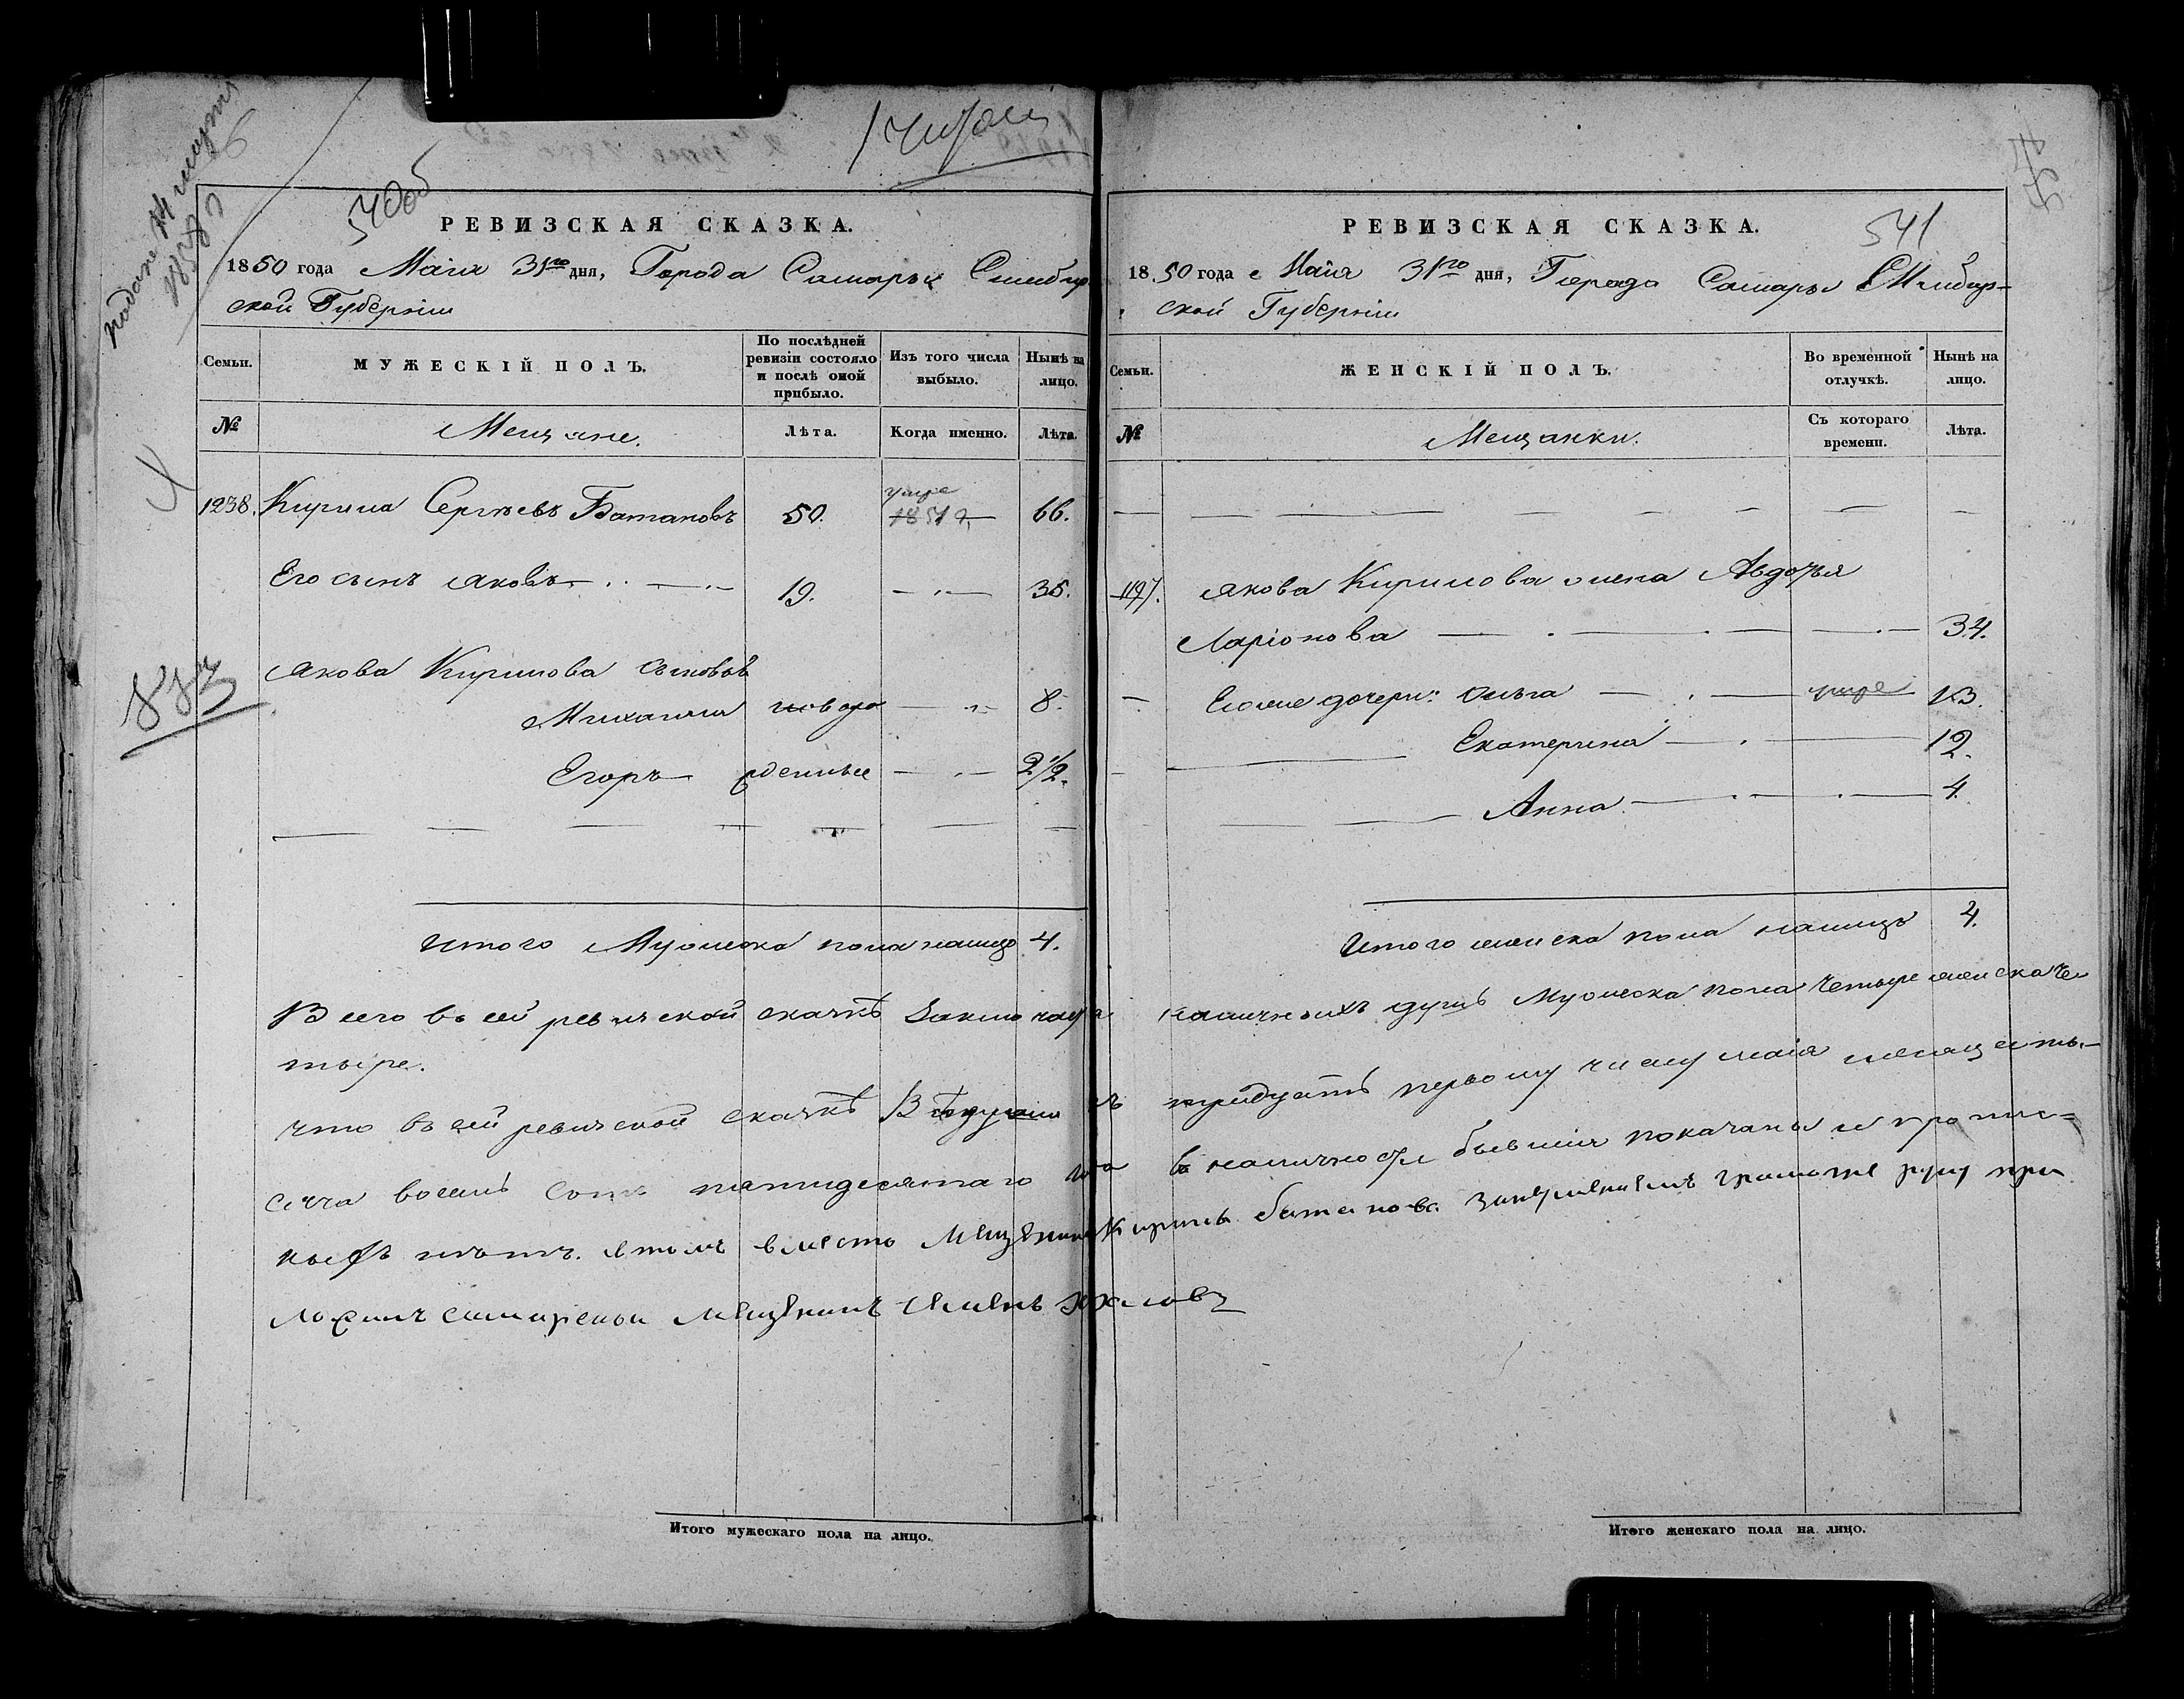 подана 14 марта
1858 г
540об
РЕВИЗСКАЯ СКАЗКА.
1850 года Маія 31го дня, Города Самары Симбир
ской Губерніи
Семьи.
МУЖЕСКІЙ ПОЛЪ.
По послѣдней ревизіи состояло и послѣ оной прибыло.
Изъ того числа выбыло.
Нынѣ на лицо.
№
Мещане.
Лѣта.
Когда именно.
Лѣта.
1238. Кирила Сергѣевъ Батановъ 50. умре 1851 г. 66.
Его сынъ Яковъ 19. 35.
Якова Кирилова сыновья
Михаила новоро 8.
Егоръ жденные 2 1/2.
Итого Мужеска пола налицо 4.
РЕВИЗСКАЯ СКАЗКА.
541
1850 года Маія 31го дня, Города Самары Симбир-
ской Губерніи
Семьи.
ЖЕНСКІЙ ПОЛЪ.
Во временной отлучкѣ.
Нынѣ на лицо.
№
Мещанки.
Съ котораго времени.
Лѣта.
1197. Якова Кирилова жена Авдотья
Ларіонова 34.
Его же дочери: Ольга умре 13.
Екатерина 12.
Анна 4.
Итого женска пола налицо 4.
Всего въ сей ревизской сказкѣ Заключаетца наличныхъ душъ Мужеска пола четыре женска че
тыре.
что въ сей ревизской сказкѣ къ тридцать первому числу маія месяца ты-
сяча восемь сотъ пятидесятаго года в наличности бывшия показаны и пропис-
ныхъ нѣтъ. в томъ вместо Мещенина Кирилы батанова грамоте руку при
ложилъ самарской мещенинъ Семенъ
Итого мужескаго пола на лицо.
Итого женскаго пола на лицо.